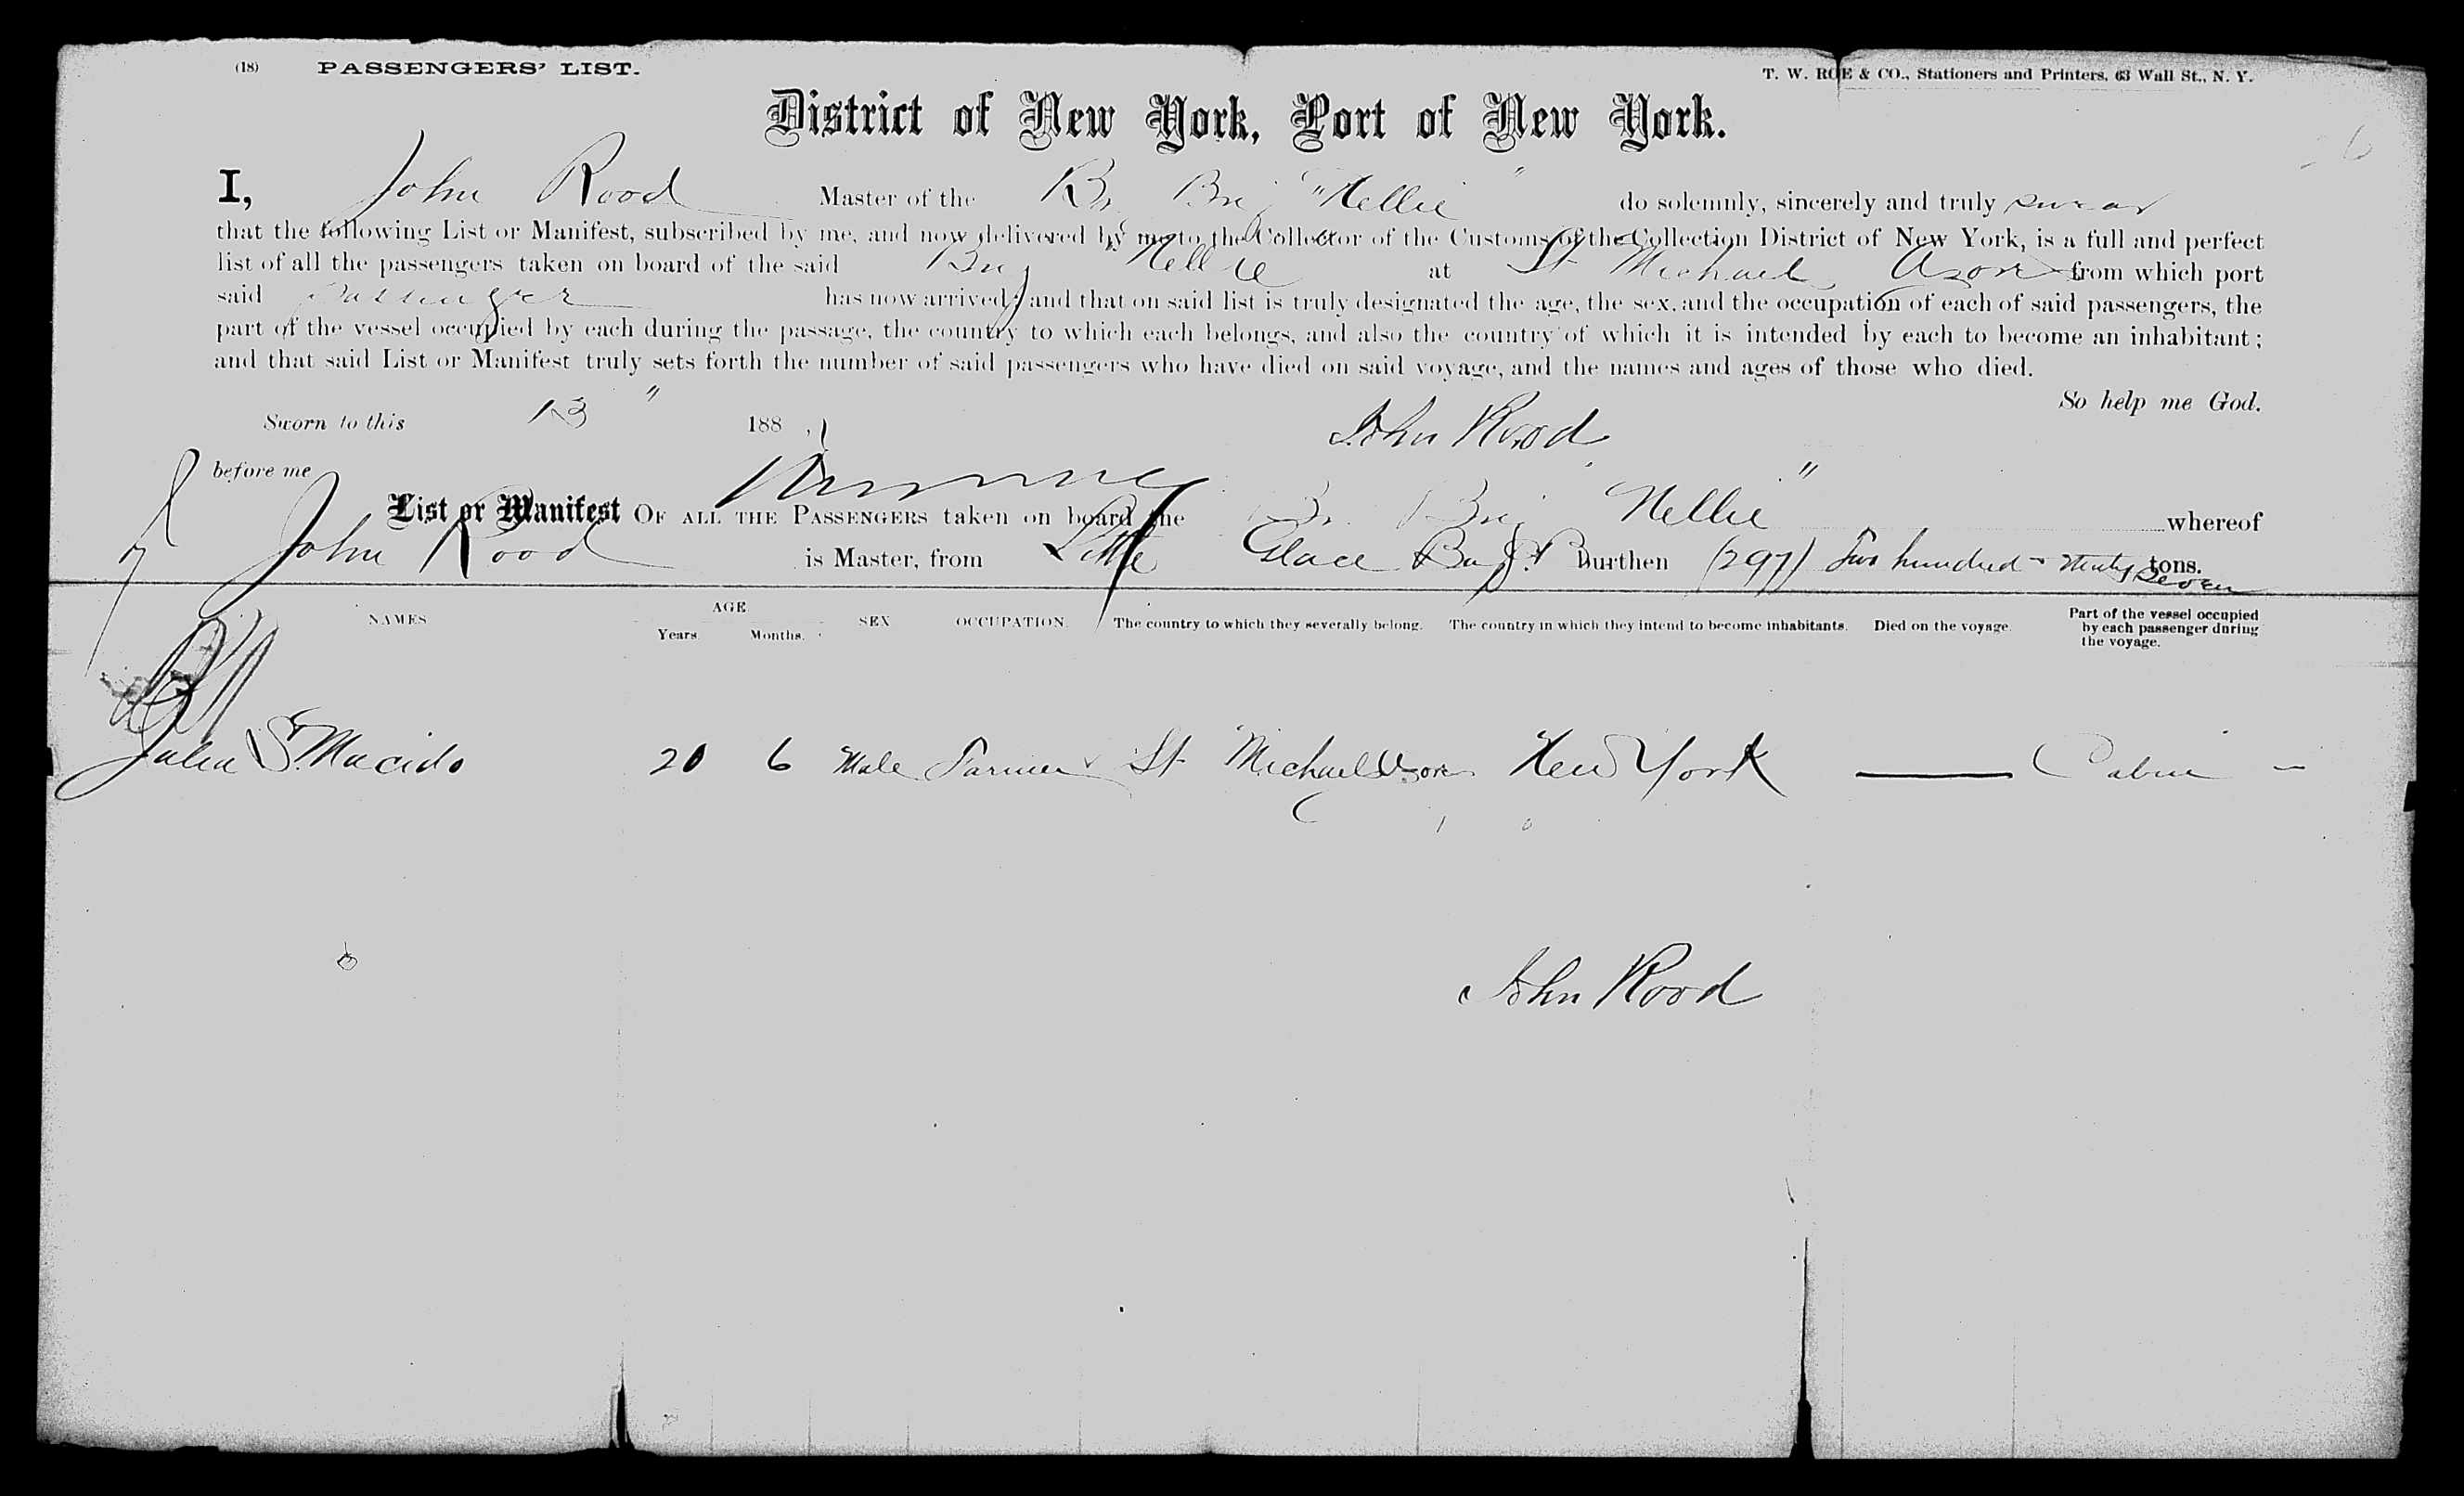 (18) PASSENGERS' LIST. T. W. ROE & CO., Stationers and Printers, 63 Wall St., N. Y.
District of New York, Port of New York.
I, John Rood Master of the Br. Brig "Nellie" do solemnly, sincerely and truly swear
that the following List or Manifest, subscribed by me, and now delivered by me to the Collector of the Customs of the Collection District of New York, is a full and perfect
list of all the passengers taken on board of the said Brig Nellie at St Michael Azores from which port
said passenger has now arrived; and that on said list is truly designated the age, the sex, and the occupation of each of said passengers, the
part of the vessel occupied by each during the passage, the country to which each belongs, and also the country of which it is intended by each to become an inhabitant;
and that said List or Manifest truly sets forth the number of said passengers who have died on said voyage, and the names and ages of those who died.
So help me God.
Sworn to this 13" 188
John Rood
before me
List or Manifest OF ALL THE PASSENGERS taken on board the Br. Brig "Nellie" whereof
John Rood is Master, from Little Glace Bay burthen (297) Two hundred ninety seven tons.
NAMES AGE Years. Months. SEX OCCUPATION. The country to which they severally belong. The country in which they intend to become inhabitants. Died on the voyage. Part of the vessel occupied by each passenger during the voyage.
S. Macido 20 6 Male Farmer St Michael Azores New York Cabin
John Rood